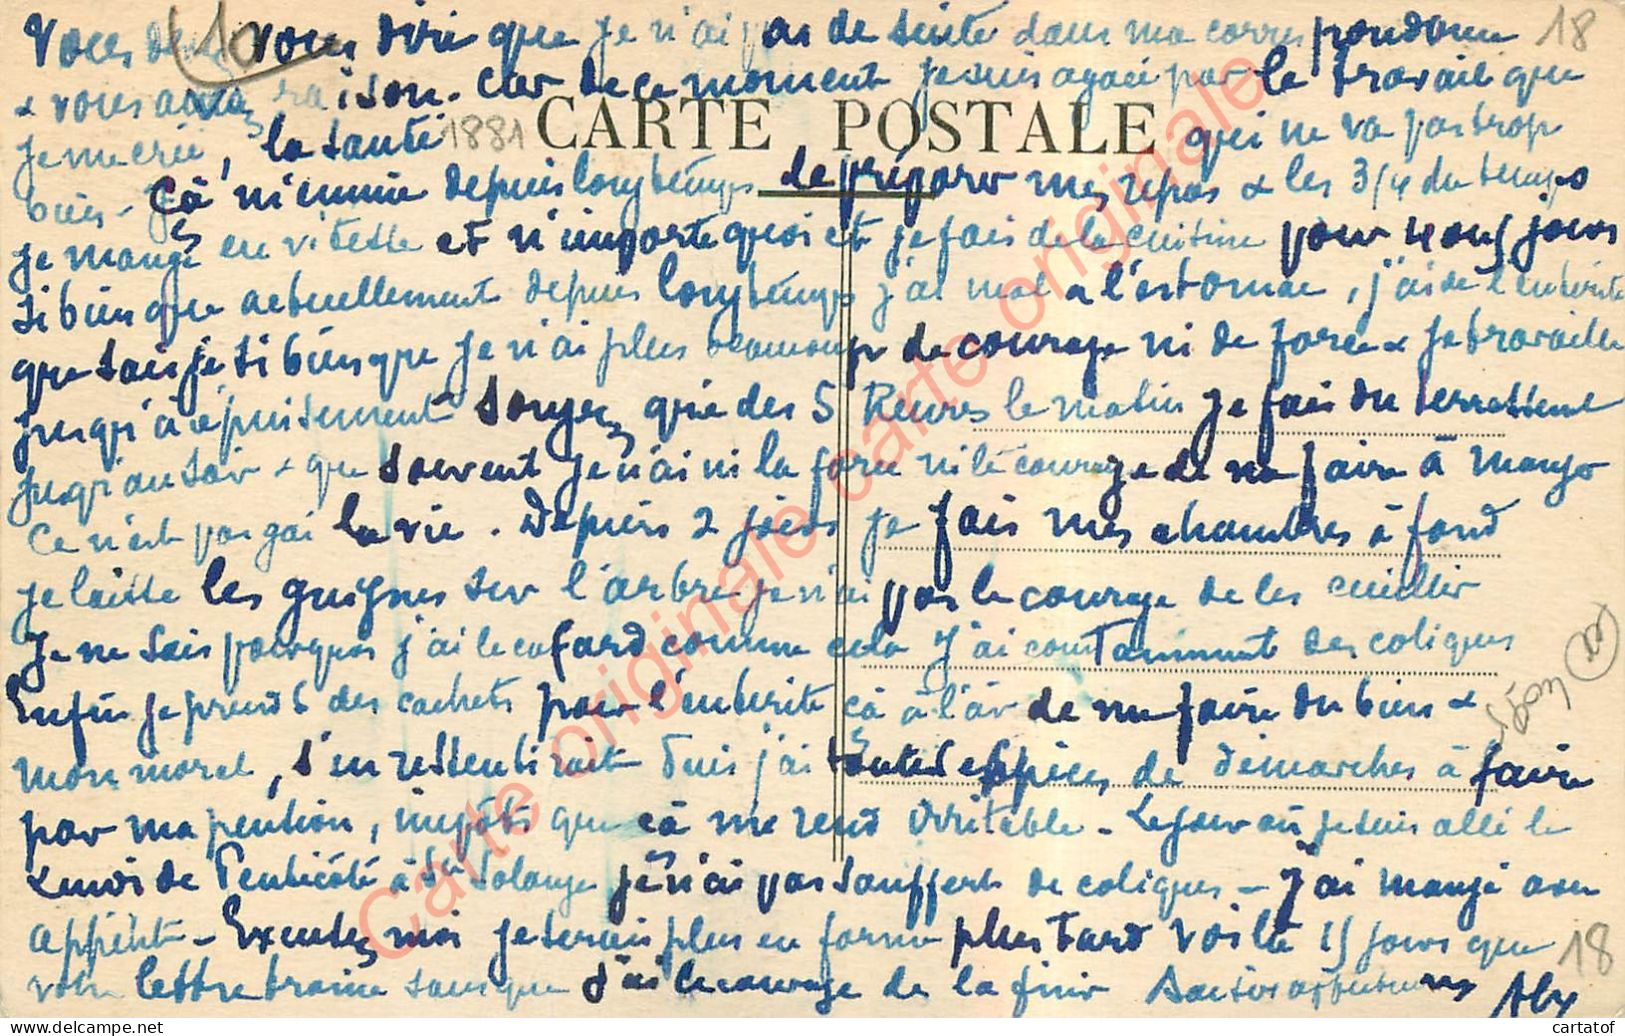 vous dire que je n'ai pas de suite dans ma correspondance 18
& vous avez raison. Car de ce moment je suis agacé par le travail que
CARTE POSTALE
je me crée, la santé 1881 qui ne va pas trop
bien - çà m'ennuie depuis longtemps de préparer mes repas & les 3/4 du temps
je mange en vitesse et n'importe quoi et je fais de la cuisine pour jours
si bien que actuellement depuis longtemps j'ai mal a l'estomac, j'ai de l'entérite
que sais je si bien que je n'ai plus beaucoup de courage ni de force & je travaille
jusqu'à épuisement - Songez que des 5 heures le matin je fais du terrassement
jusqu'au soir & que souvent je n'ai ni la force ni le courage de me faire à manger
Ce n'est pas gai la vie. Depuis 2 jours je fais mes chambres à fond
je laisse les guignes sur l'arbre je n'ai pas le courage de les cueillir
Je ne sais pourquoi j'ai le cafard comme cela J'ai constamment des coliques
Enfin je prends des cachets pour l'enterite çà à l'air de me faire du bien &
mon moral, s'en ressentirait Puis j'ai toutes espèces de démarches à faire
par ma pention, impôts que çà me rend irritable - Le jour où je suis allé le
Lundi de Pentecôté à Ste Solange je n'ai pas souffert de coliques - J'ai mangé avec
appétit - Excusez moi je serais plus en forme plus tard voilà 15 jours que 18
votre lettre traine sans que j'ai le courage de la finir
Carte originale carte originale
Carte originale carte originale
cartatof